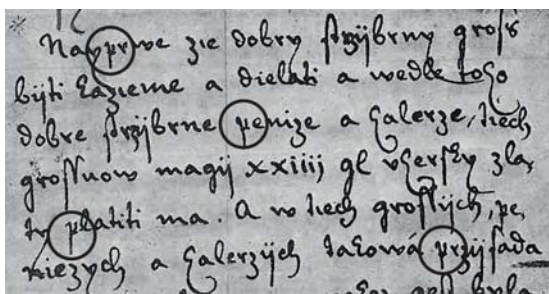 Nayprwe zie dobry strzijbrny gross
bijti kazieme a dielati a wedle toho
dobre strzijbrne penize a halerze, tiech
grossuow magij xxiiij gl vherskÿ zla,
tÿ platiti ma. A w tiech grossijch, pe,
niezych a halerzijch takowá przijsada